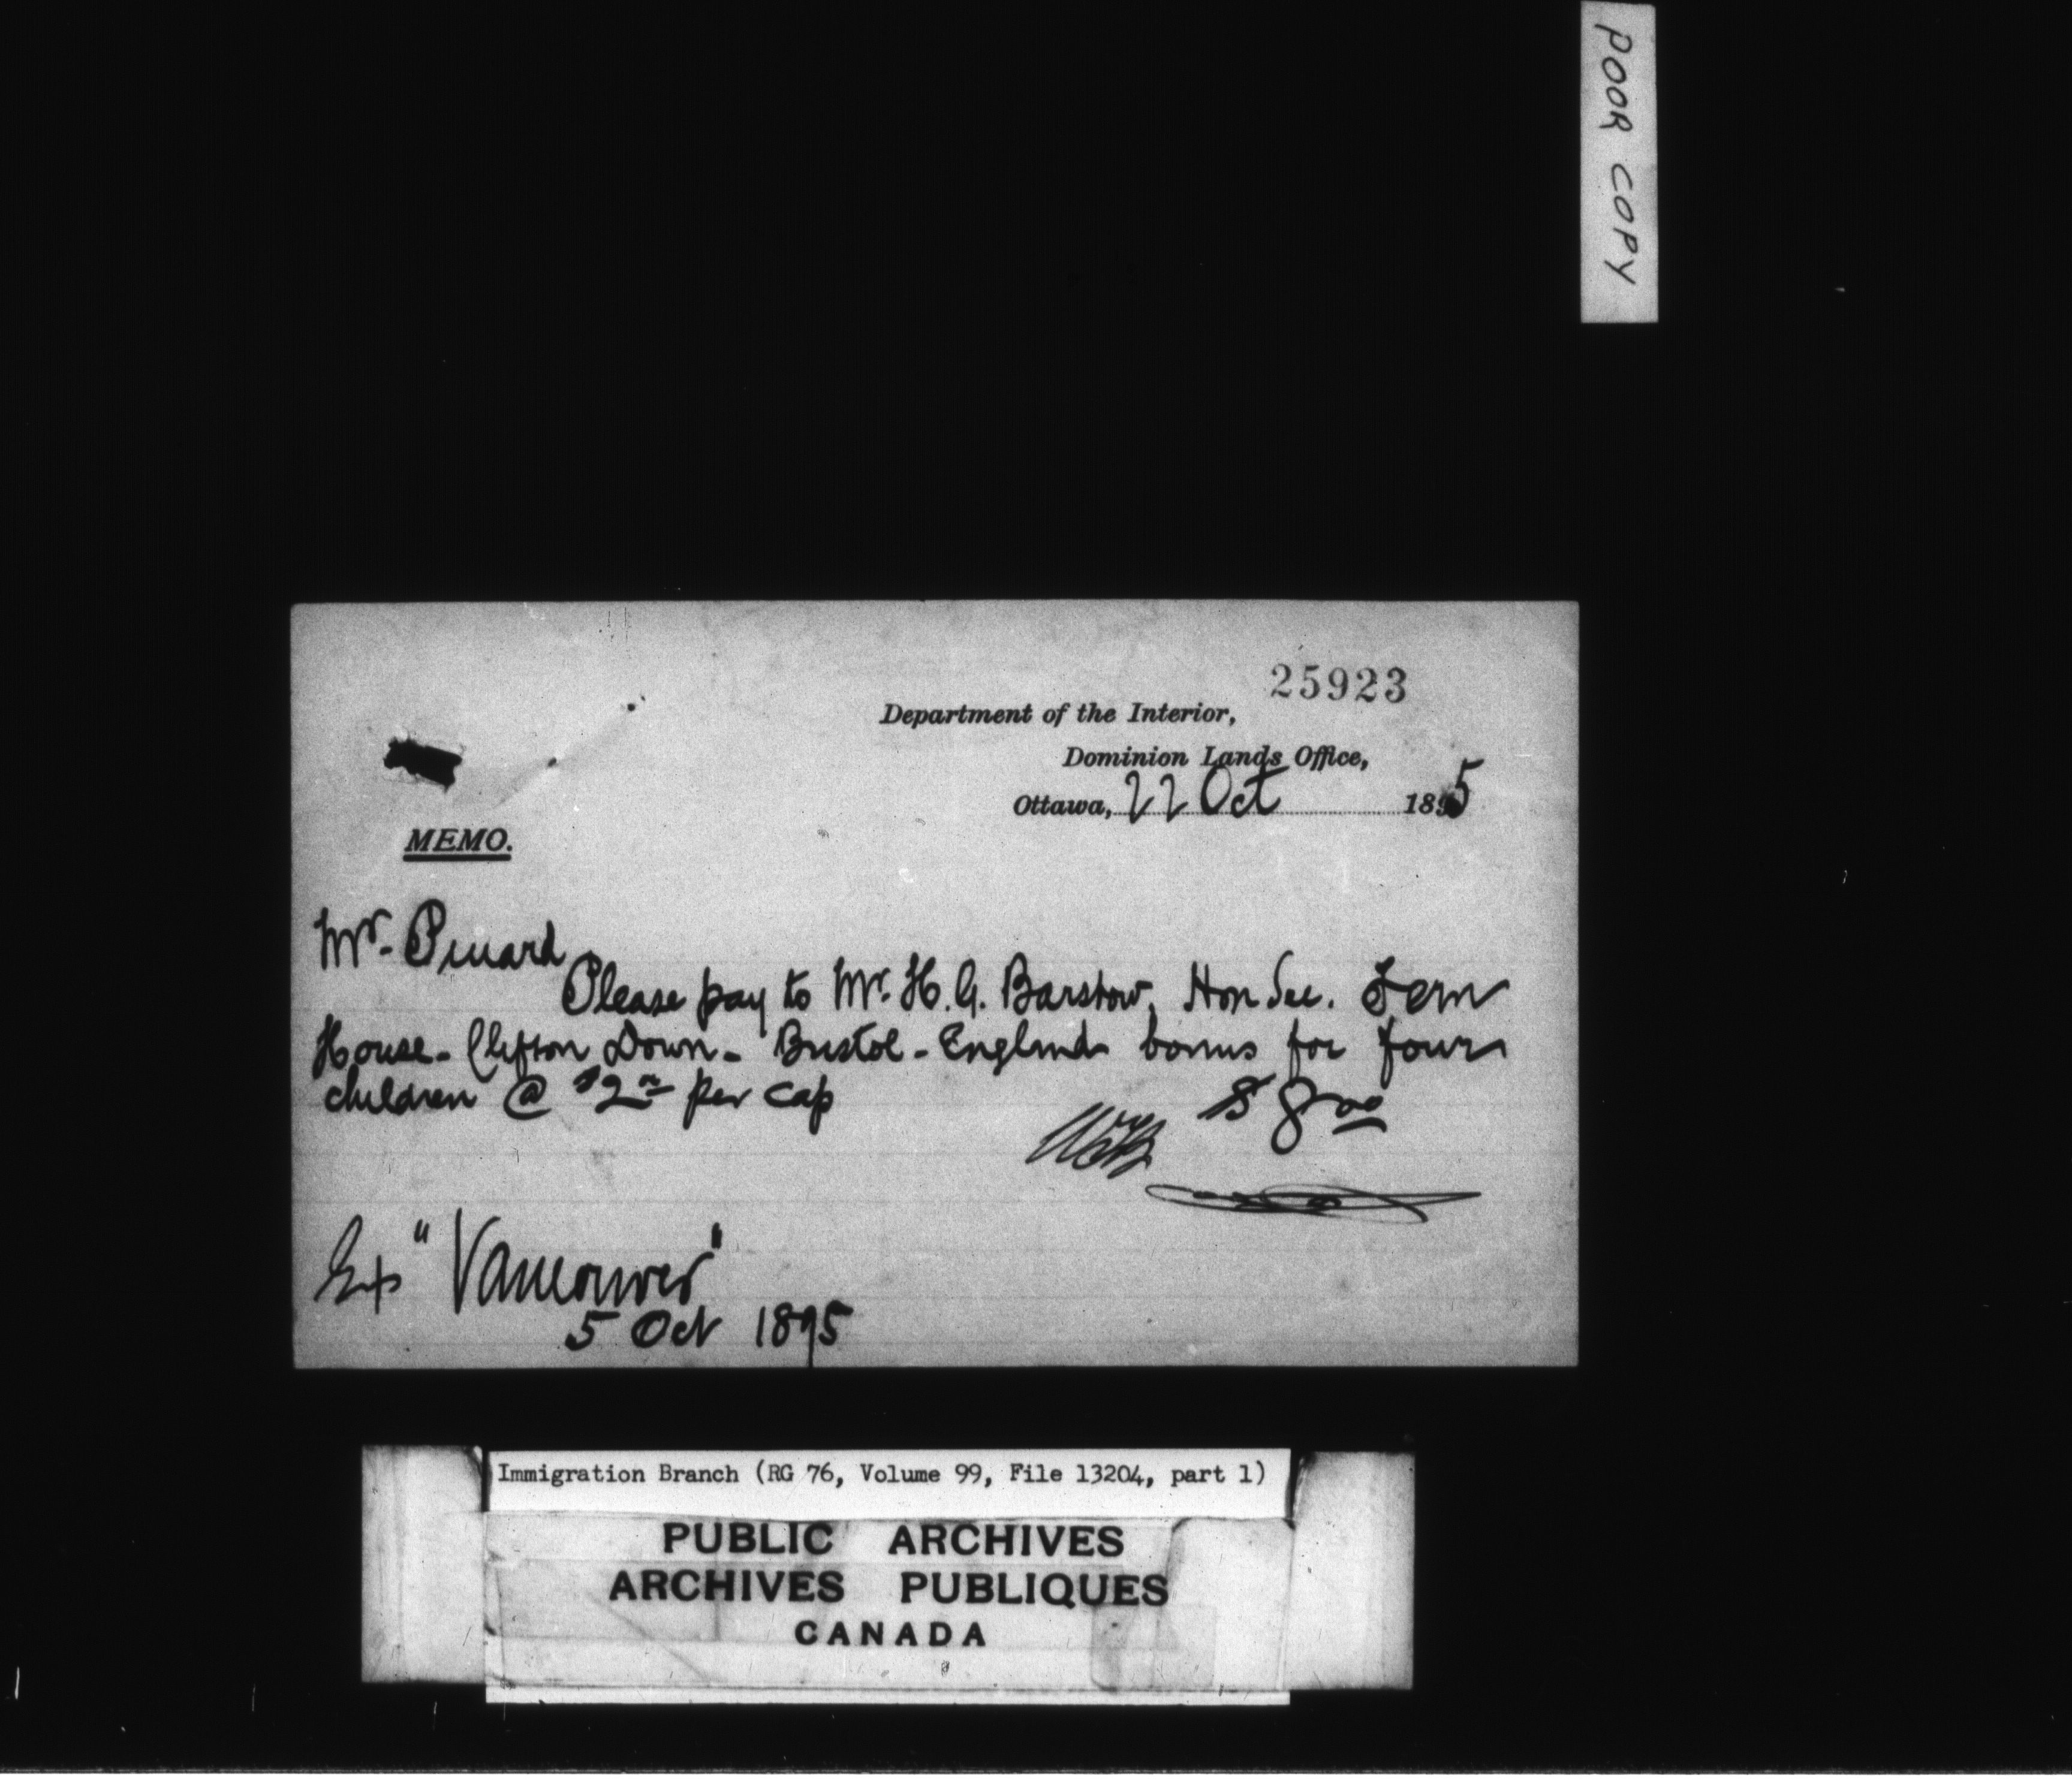 POOR COPY
25923
Department of the Interior,
Dominion Lands Office,
Ottawa, 22 Oct 1895
MEMO.
Mr. Pinard
Please pay to Mr. H. G. Barstow, Hon Sec. Fern
House - Clifton Down - Bristol - England bonus for four
children @ $2.00 per cap
$8.00
Ex "Vancouver"
5 Oct 1895
Immigration Branch (RG 76, Volume 99, File 13204, part 1)
PUBLIC ARCHIVES
ARCHIVES PUBLIQUES
CANADA